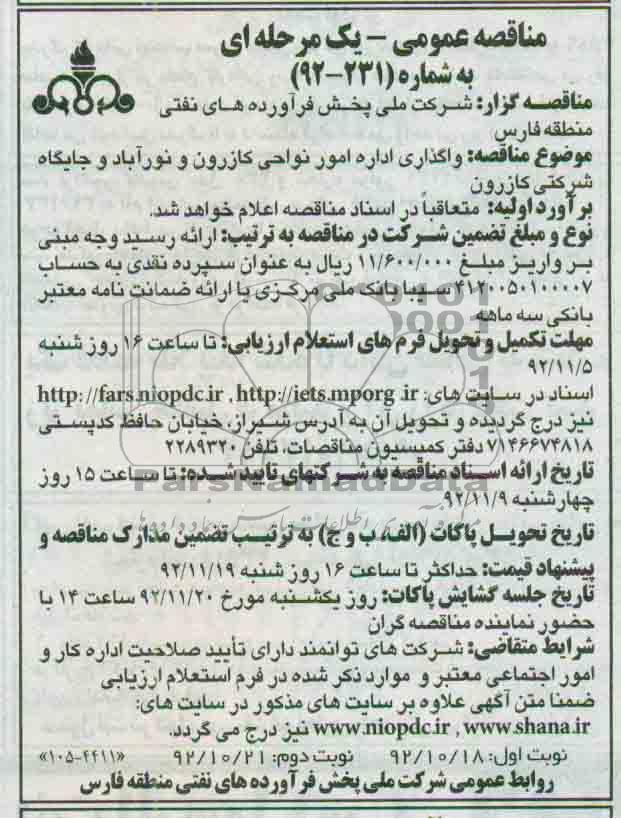 مناقصه عمومی - یک مرحله ای
به شماره (۲۳۱-۹۲)
مناقصه گزار: شرکت ملی پخش فرآورده های نفتی
منطقه فارس
موضوع مناقصه: واگذاری اداره امور نواحی کازرون و نورآباد و جایگاه
شرکتی کازرون
برآورد اولیه: متعاقباً در اسناد مناقصه اعلام خواهد شد.
نوع و مبلغ تضمین شرکت در مناقصه به ترتیب: ارائه رسید وجه مبنی
بر واریز مبلغ ۱۱/۶۰۰/۰۰۰ ریال به عنوان سپرده نقدی به حساب
۴۱۲۰۰۵۰۱۰۰۰۰۷ سیبا بانک ملی مرکزی یا ارائه ضمانت نامه معتبر
بانکی سه ماهه
مهلت تکمیل و تحویل فرم های استعلام ارزیابی: تا ساعت ۱۶ روز شنبه
۹۲/۱۱/۵
اسناد در سایت های: http://fars.niopdc.ir , http://iets.mporg.ir
نیز درج گردیده و تحویل آن به آدرس شیراز، خیابان حافظ کدپستی
۷۱۴۶۶۷۴۸۱۸ دفتر کمیسیون مناقصات، تلفن ۲۲۸۹۳۲۰
تاریخ ارائه اسناد مناقصه به شرکتهای تایید شده: تا ساعت ۱۵ روز
چهارشنبه ۹۲/۱۱/۹
تاریخ تحویل پاکات (الف، ب و ج) به ترتیب تضمین مدارک مناقصه و
پیشنهاد قیمت: حداکثر تا ساعت ۱۶ روز شنبه ۹۲/۱۱/۱۹
تاریخ جلسه گشایش پاکات: روز یکشنبه مورخ ۹۲/۱۱/۲۰ ساعت ۱۴ با
حضور نماینده مناقصه گران
شرایط متقاضی: شرکت های توانمند دارای تأیید صلاحیت اداره کار و
امور اجتماعی معتبر و موارد ذکر شده در فرم استعلام ارزیابی
ضمنا متن آگهی علاوه بر سایت های مذکور در سایت های:
www.niopdc.ir , www.shana.ir نیز درج می گردد.
نوبت اول: ۹۲/۱۰/۱۸ نوبت دوم: ۹۲/۱۰/۲۱ «۱۰۵-۴۴۱۱»
روابط عمومی شرکت ملی پخش فرآورده های نفتی منطقه فارس
ParsNamadData